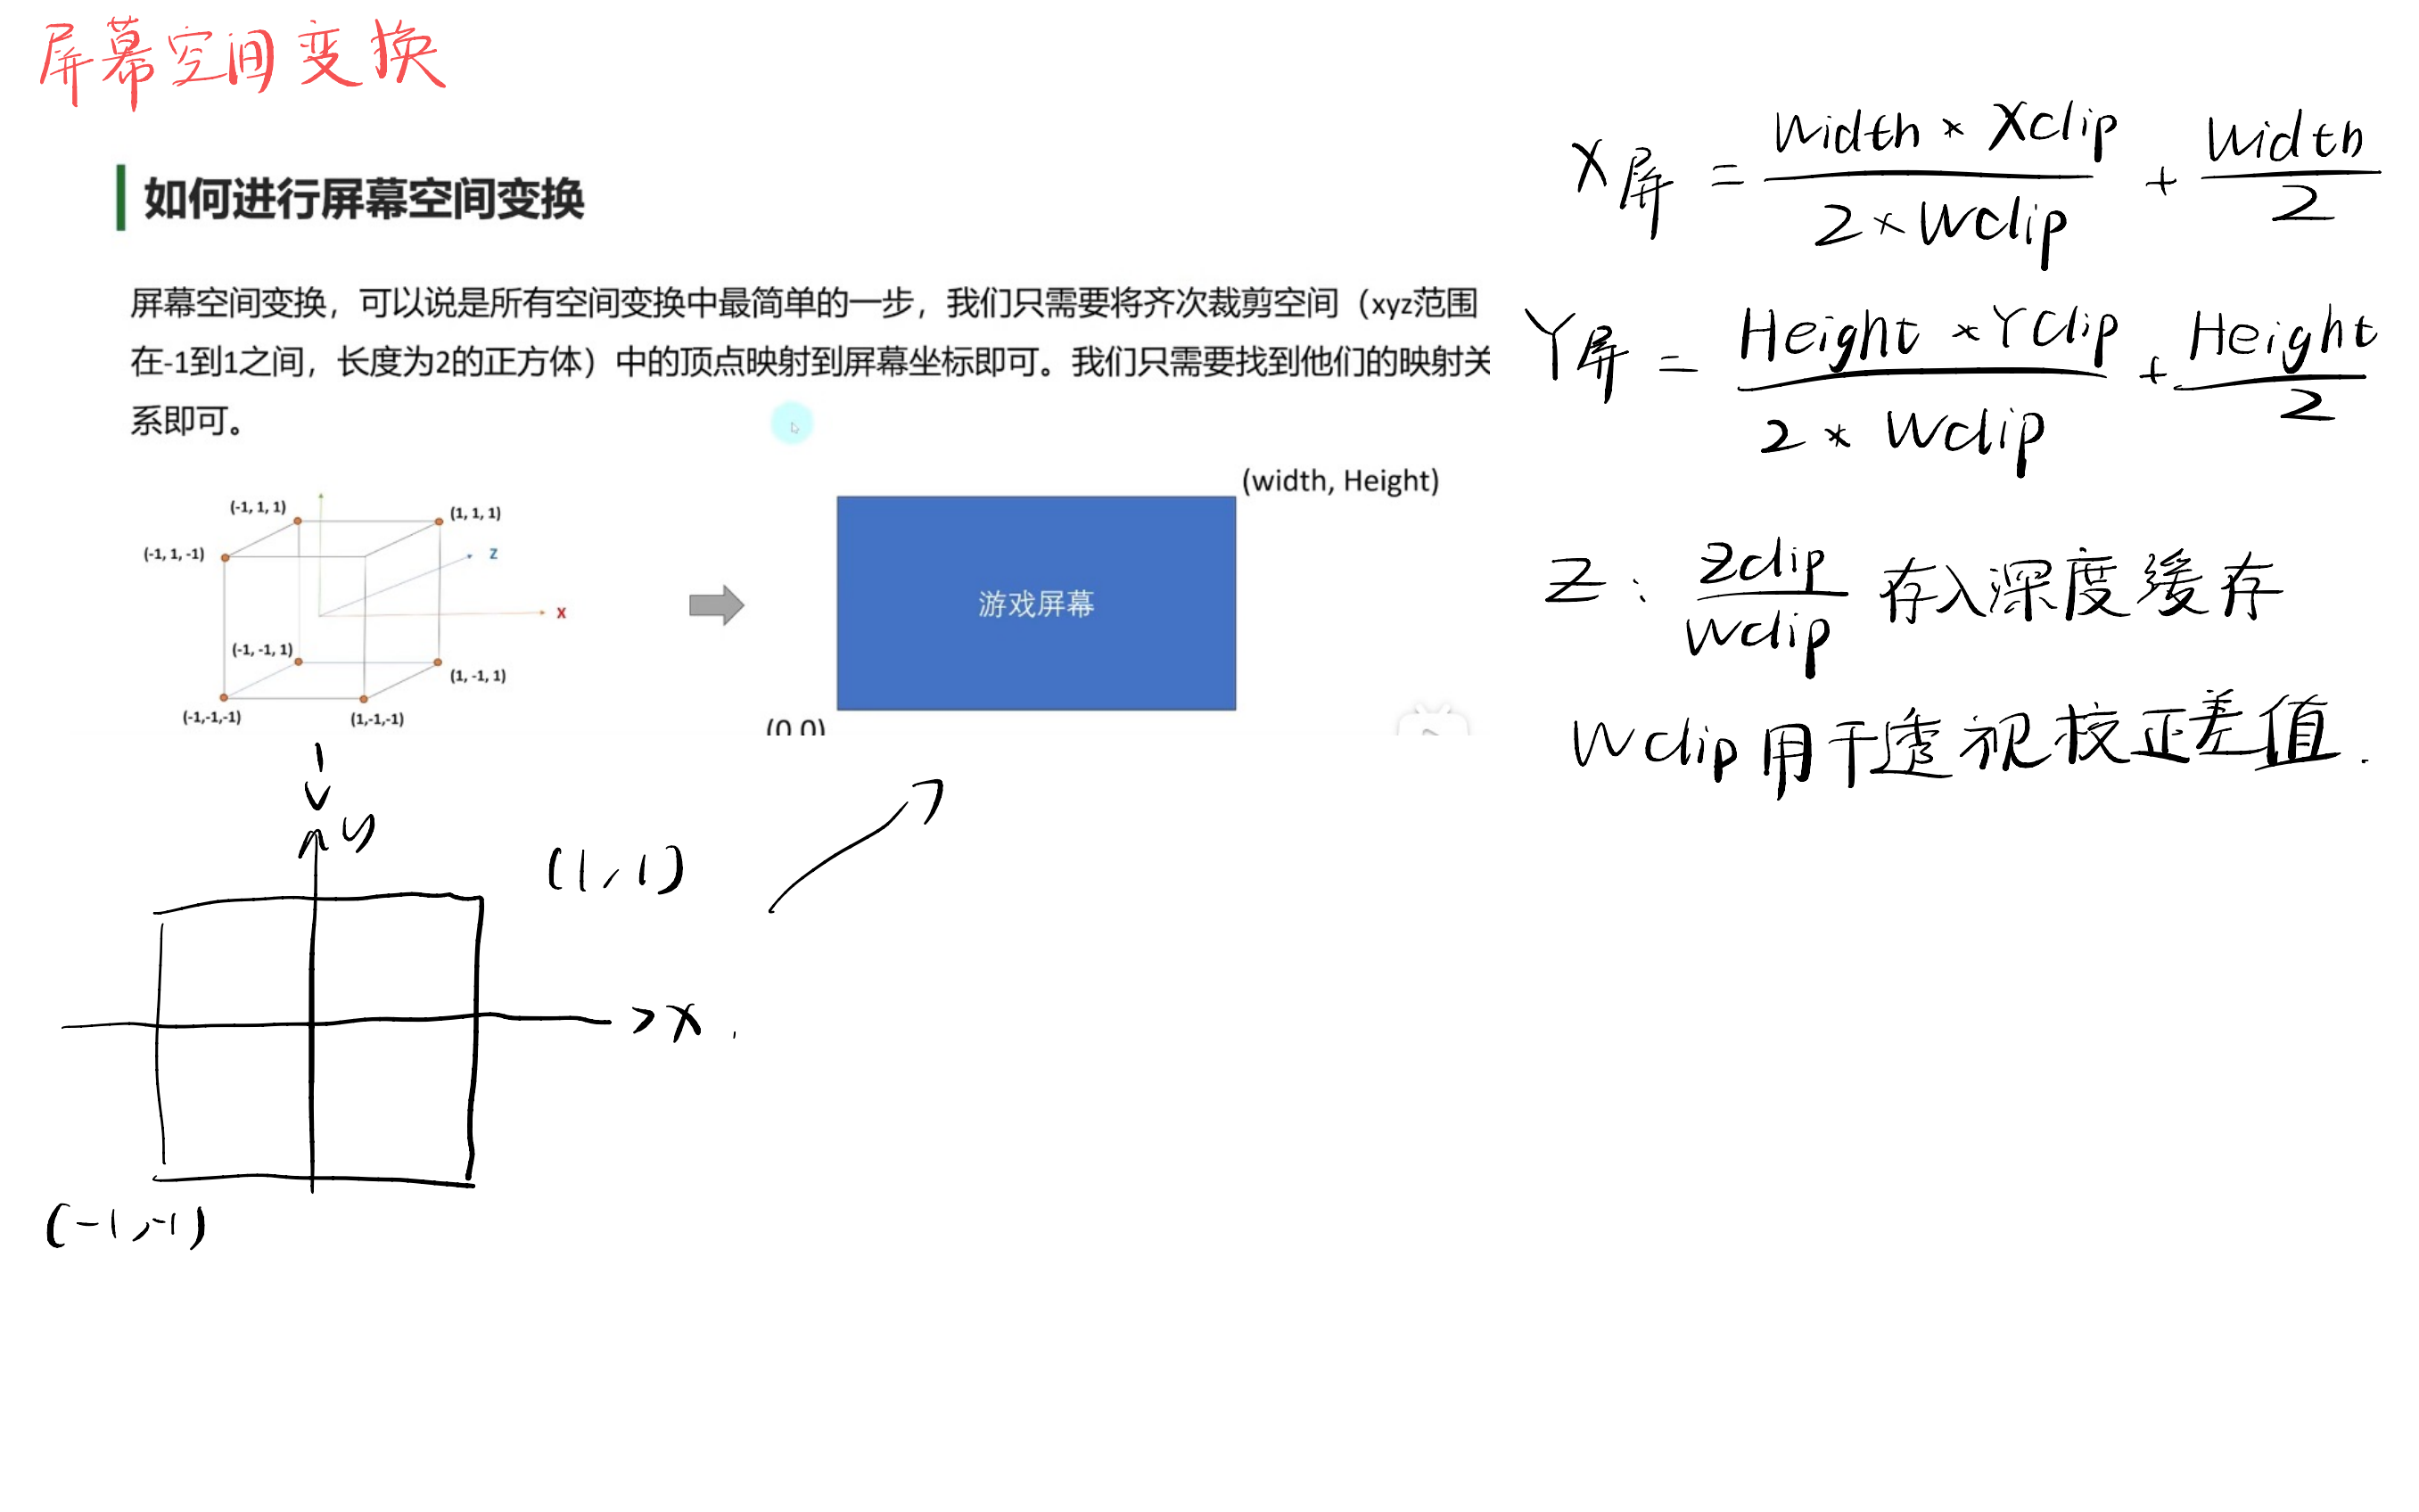 屏幕空间变换
如何进行屏幕空间变换
屏幕空间变换，可以说是所有空间变换中最简单的一步，我们只需要将齐次裁剪空间（xyz范围
在-1到1之间，长度为2的正方体）中的顶点映射到屏幕坐标即可。我们只需要找到他们的映射关
系即可。
(-1, 1, 1)
(1, 1, 1)
(-1, 1, -1)
Z
X
(-1, -1, 1)
(1, -1, 1)
(-1,-1,-1)
(1,-1,-1)
(width, Height)
游戏屏幕
(0,0)
y
(1,1)
x
(-1,-1)
X屏 = Width * Xclip / 2 * Wclip + Width / 2
Y屏 = Height * Yclip / 2 * Wclip + Height / 2
Z: Zclip / Wclip 存入深度缓存
Wclip用于透视校正差值.